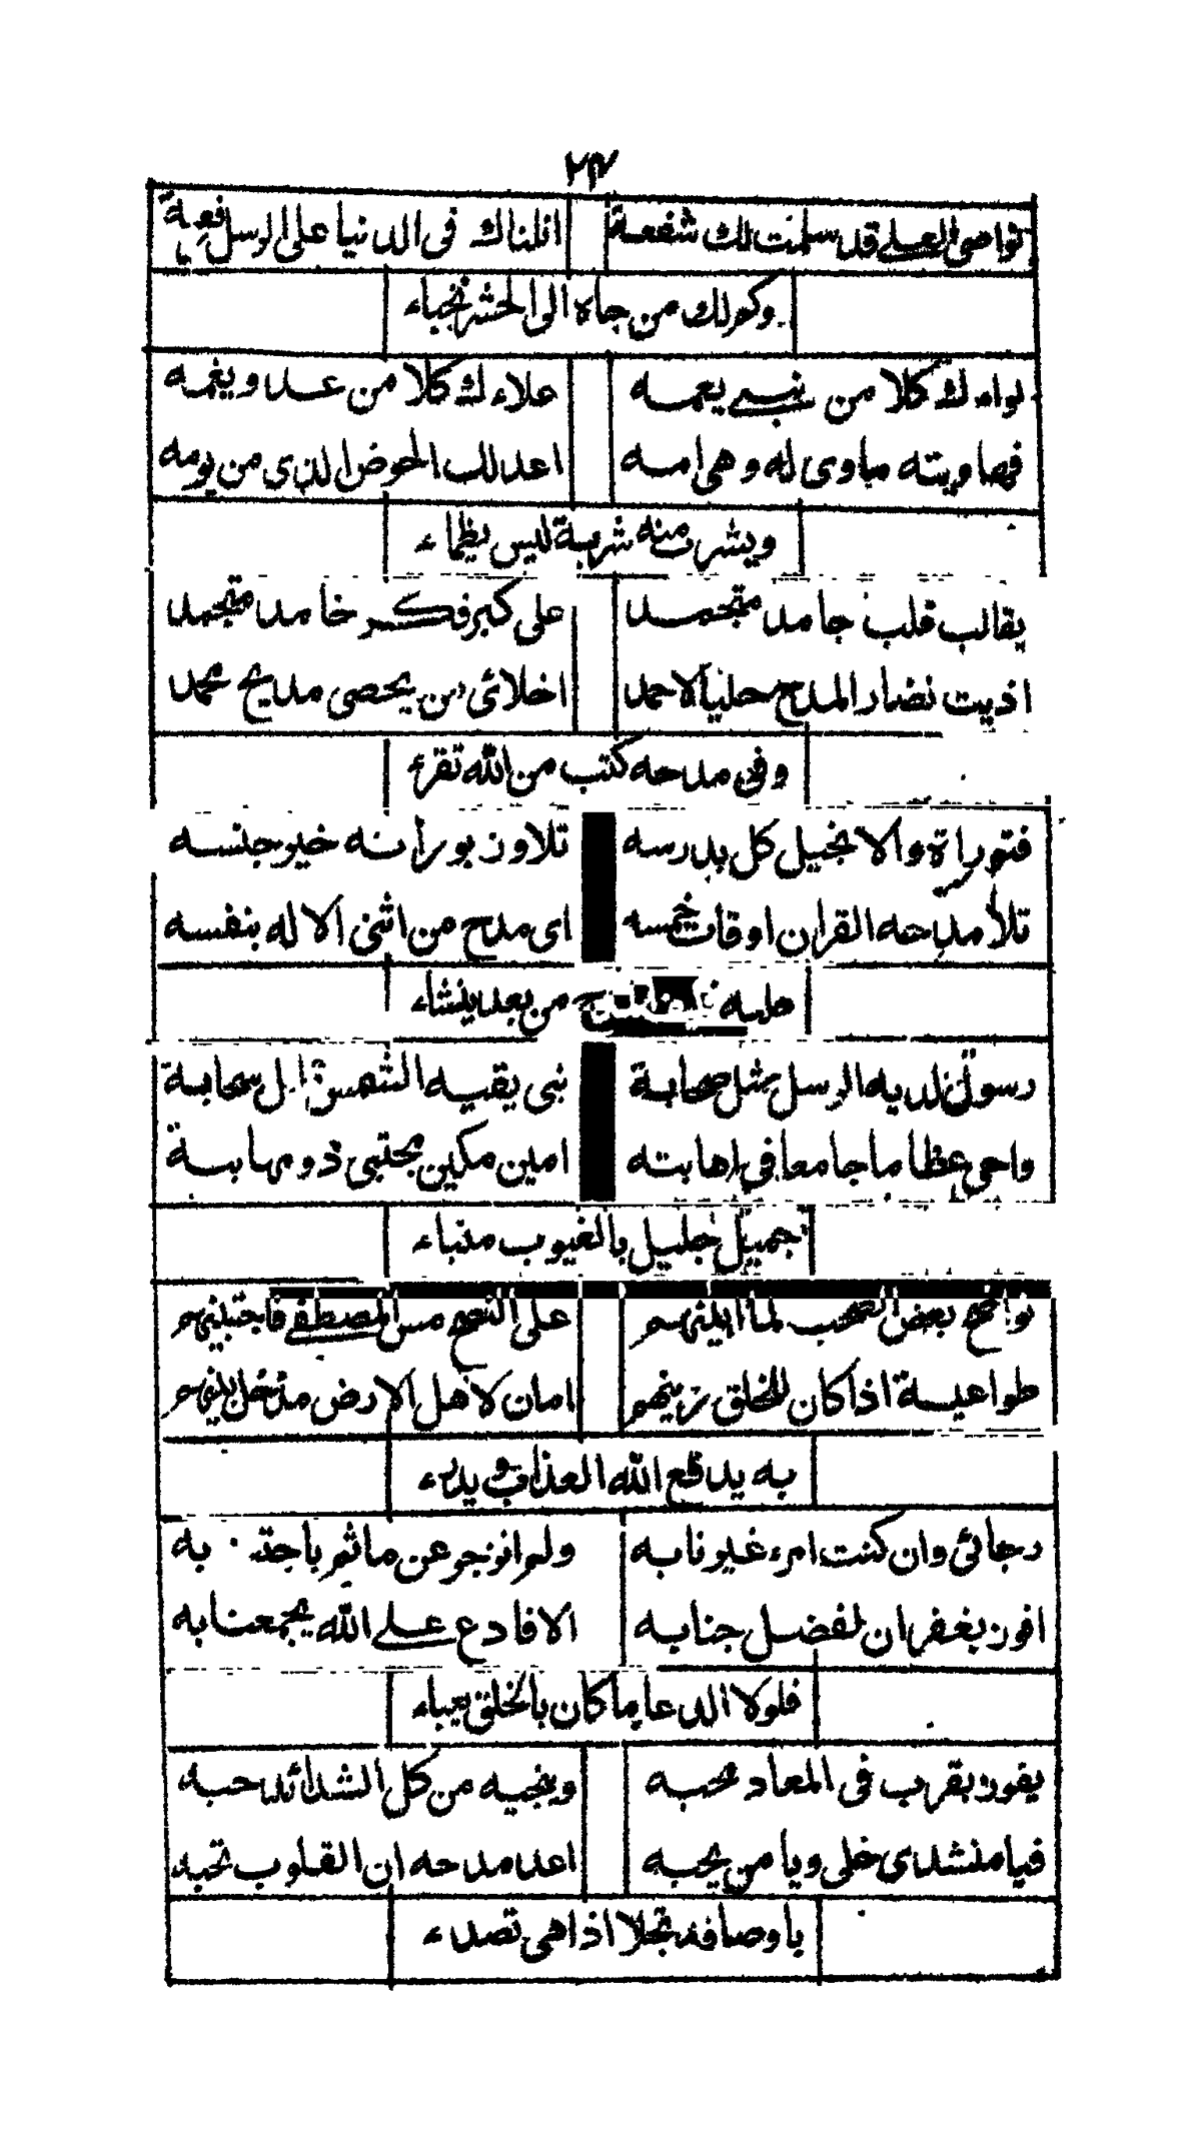 ٢٣
نواصى العلے قد سلمت لك شفعة انلناك فى الدنيا على الرسل رفعة
وكم لك من جاه الى الحشر نخباء
لواء لك كلا من نبے يعمه علاء لك كلا من عدا ويغمه
فما ويته مباوى له وهى امه اعد لك الحوض الذى من يومه
ويشرب منه شربة ليس يظماء
يقالب قلب جامد متجمد على كبر فكر خامد متجمد
اذيبت نضار المدح حليا لاحمد اخلائى من يحصى مديح محمد
وفى مدحه كتب من الله تقرء
فتوراة والانجيل كل بدرسه تلاوز بورانه خير جنسه
تلا مدحه القران اوقات خمسه اى مدح من اثنى الاله بنفسه
عليه من بعد ينشاء
رسول لديه الرسل مثل صحابة نبى يقيه الشمس ظل سحابة
واحى عظاما جامعا فى اهابته امين مكين مجتبى ذو مهابة
جميل جليل بالغيوب منباء
نواضح بعض الصحب لما ابلينهم على النصح من المصطفے فاجتبلينهم
طواعية اذا كان للخلق زينهم امان لاهل الارض مذ حل بينهم
به يدفع الله العذاب ويدرء
رجائى وان كنت امرء غير نابه ولم انزجر عن ماثم باجتنابه
افوز بغفران لفضل جنابه الا فادع علے الله يجمعنا به
فلولا الدعا ما كان بالخلق يعباء
يفوز بقرب فى المعاد محبه وينجيه من كل الشدائد حبه
فيا منشدى خلى ويا من يحبه اعد مدحه ان القلوب تحبه
باوصافه تجلا اذا هى تصداء